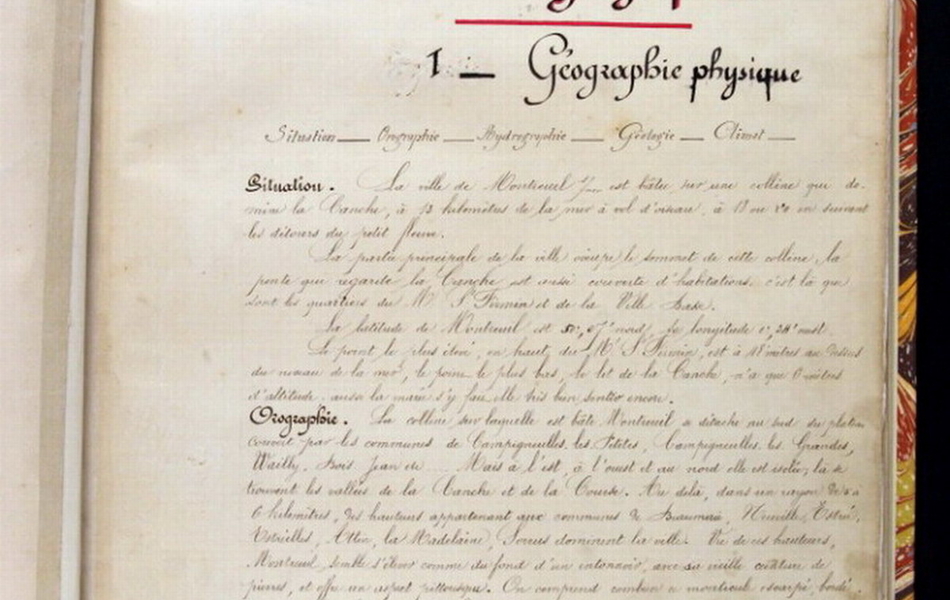 1 — Géographie physique
Situation — Orographie — Hydrographie — Géologie — Climat —
Situation. La ville de Montreuil s/mer est bâtie sur une colline qui do-
mine la Canche, à 13 kilomètres de la mer à vol d'oiseau, à 18 ou 20 en suivant
les détours du petit fleuve.
La partie principale de la ville occupe le sommet de cette colline, la
pente qui regarde la Canche est aussi couverte d'habitations. c'est là que
sont les quartiers du Mt St Firmin et de la Ville Basse.
La latitude de Montreuil est nord, la longitude ouest.
Le point le plus élevé, en haut du Mt St Firmin, est à 48 mètres au dessus
du niveau de la mer, le point le plus bas, le lit de la Canche, n'a que 6 mètres
d'altitude. aussi la marée s'y fait elle très bien sentir encore.
Orographie. La colline sur laquelle est bâtie Montreuil se détache au sud du plateau
couvert par les communes de Campigneulles les Petites, Campigneulles les Grandes,
Wailly, Bois Jean etc... Mais à l'est, à l'ouest et au nord elle est isolée; là se
trouvent les vallées de la Canche et de la Course. Au delà, dans un rayon de 5 à
6 kilomètres, des hauteurs appartenant aux communes de Beaumerie, Neuville, Estrée,
Estréelles, Attin, la Madelaine, Sorrus dominent la ville. Vu de ces hauteurs,
Montreuil semble s'élever comme du fond d'un entonnoir, avec sa vieille ceinture de
pierres, et offre un aspect pittoresque. On comprend combien ce monticule escarpé, bordé